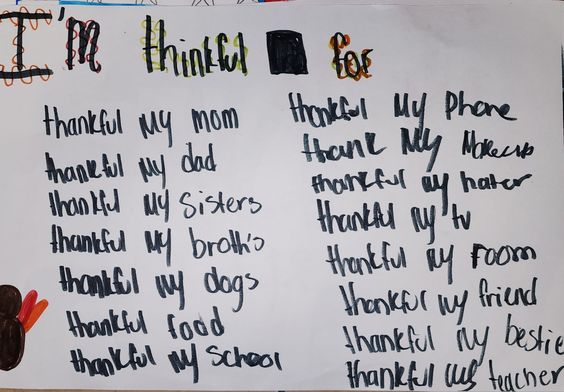 I'm thinkful for
thankful my mom
thankful my dad
thankful my sisters
thankful my broth's
thankful my dogs
thankful food
thankful my school
thankful My Phone
thank My Makeup
thankful my hater
thankful my tv
thankful my room
thankful my friend
thankful my bestie
thankful my teacher